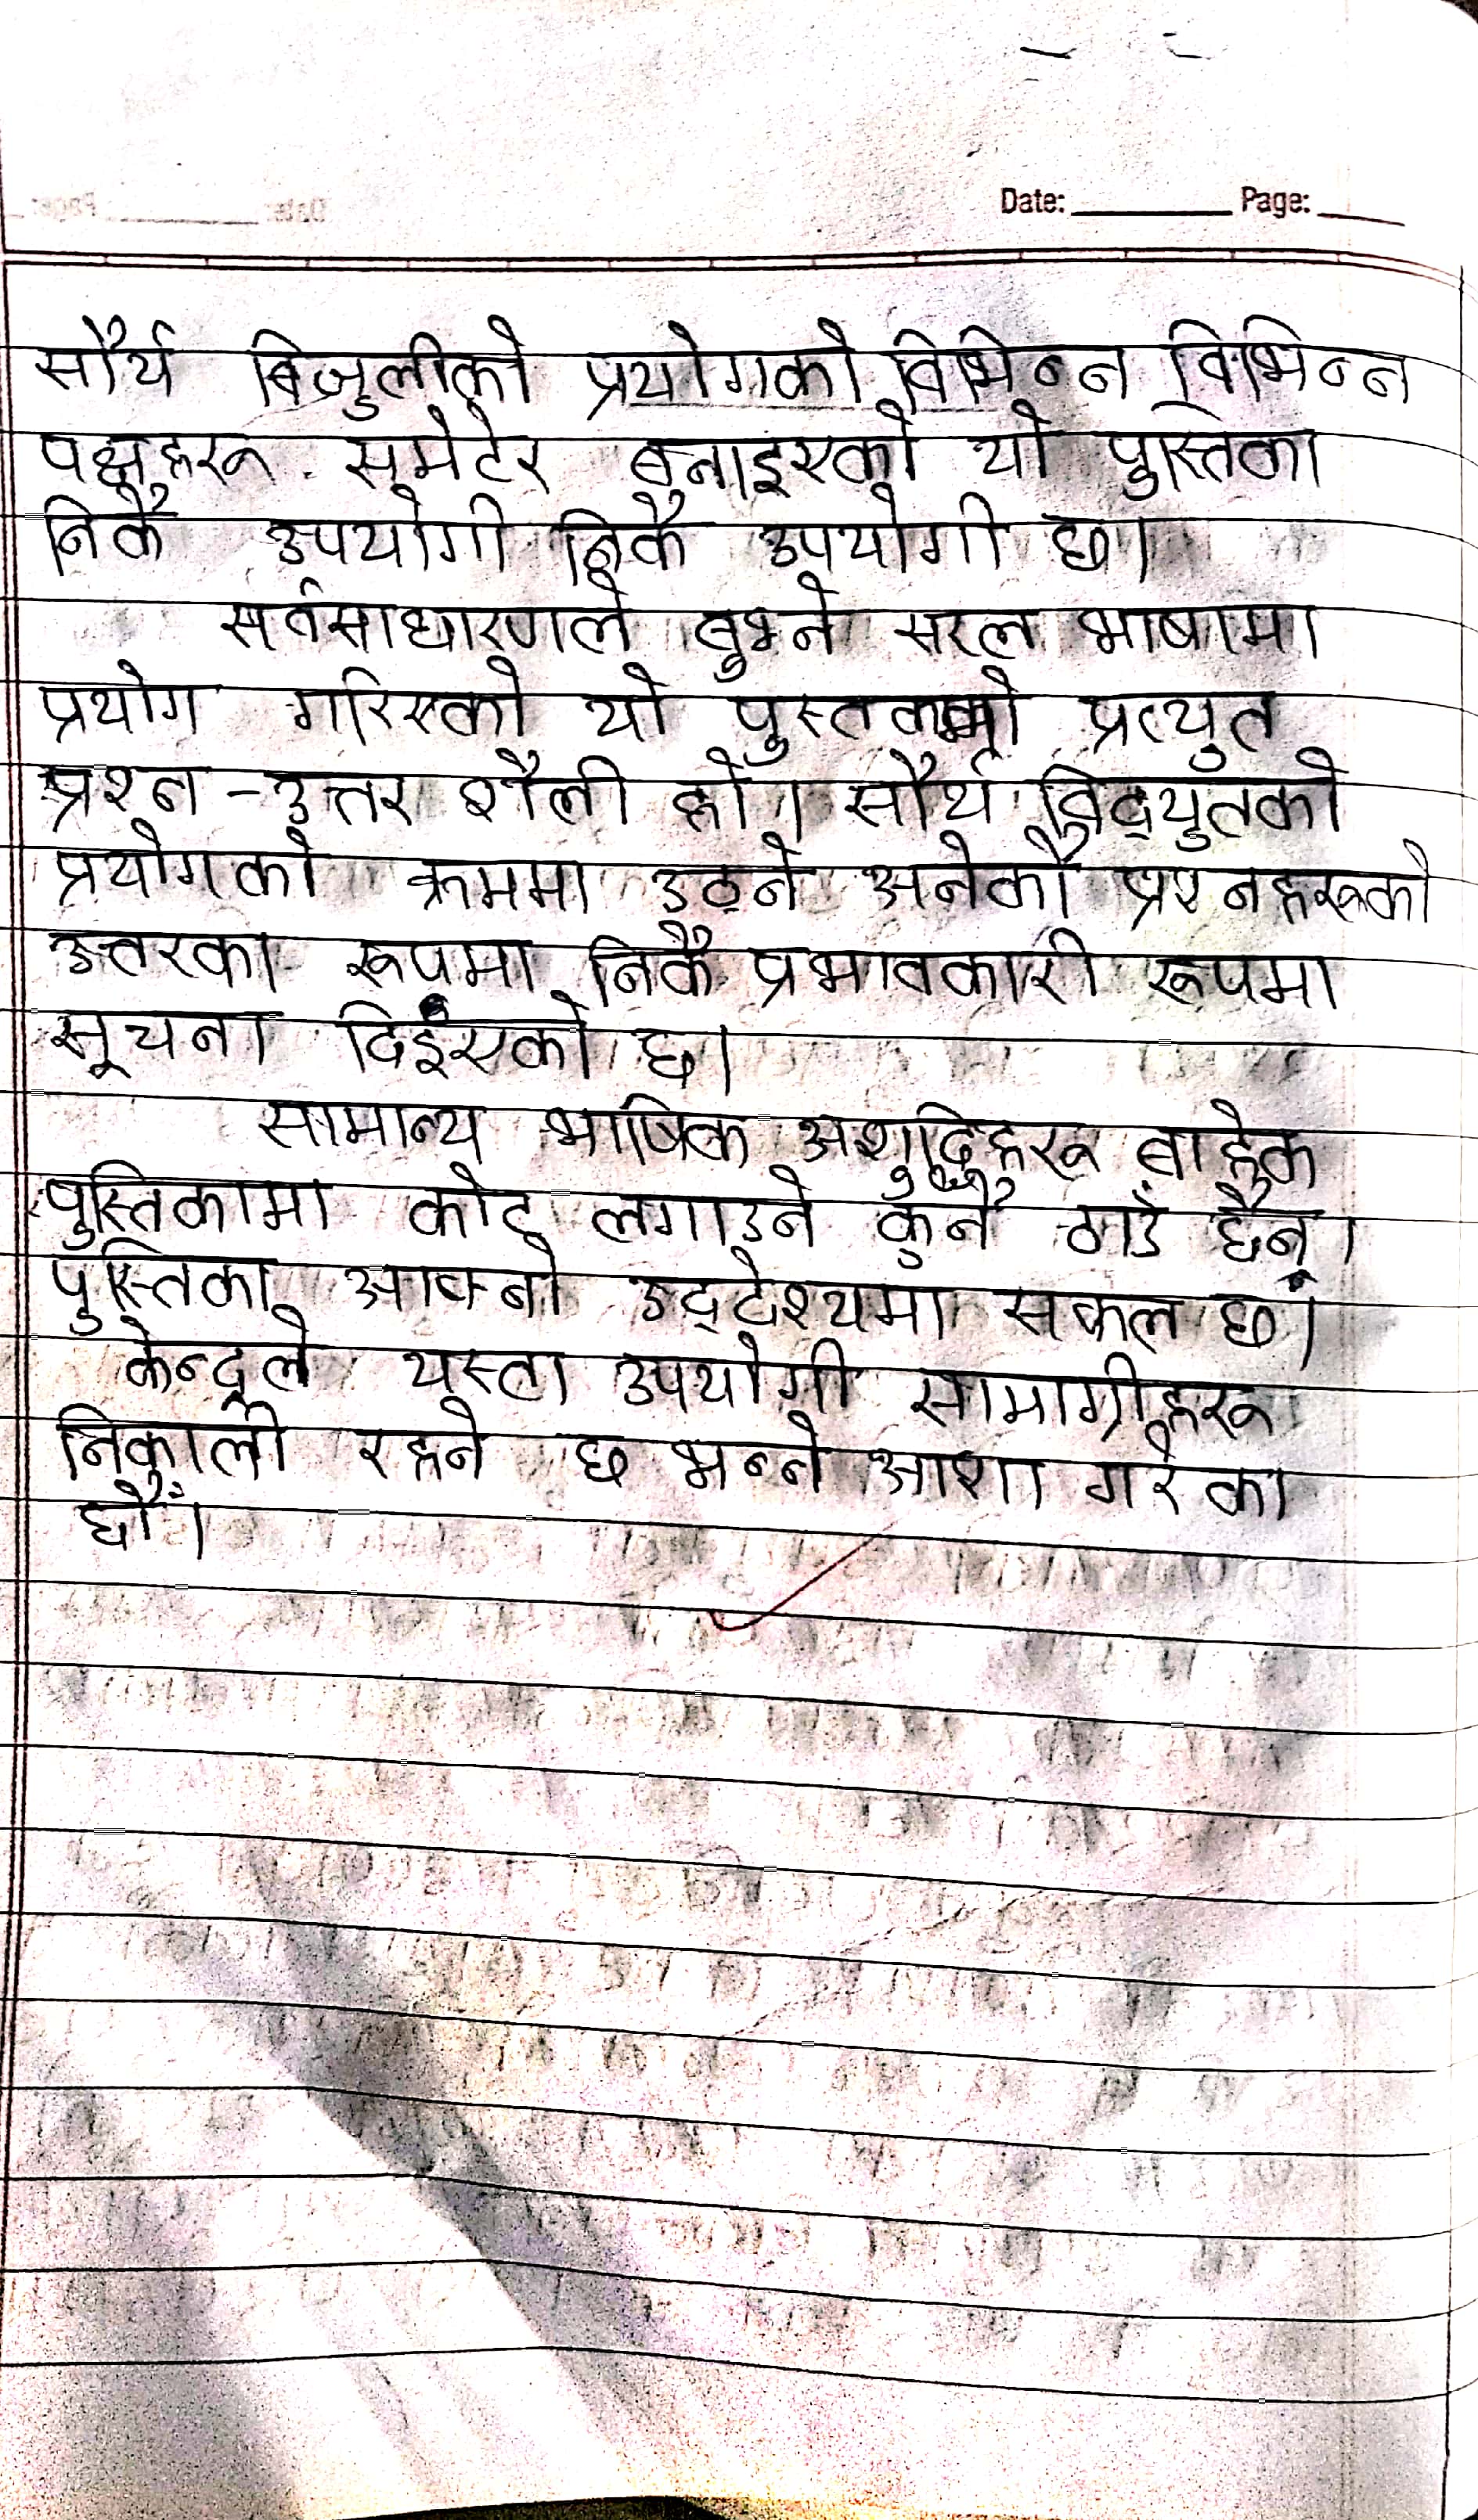 Date: Page:
सौर्य बिजुलीको प्रयोगको विभिन्न विभिन्न
पक्षहरू समेटेर बनाइएको यो पुस्तिका
निकै उपयोगी निकै उपयोगी छ।
सर्वसाधारणले बुझ्ने सरल भाषामा
प्रयोग गरिएको यो पुस्तकको प्रत्युत
प्रश्न - उत्तर शैली हो। सौर्य विद्युतको
प्रयोगको क्रममा उठ्ने अनेकौ प्रश्नहरूको
उत्तरका रूपमा निकै प्रभावकारी रूपमा
सूचना दिइएको छ।
सामान्य भाषिक अशुद्धिहरू बाहेक
पुस्तिकामा कोट् लगाउने कुनै ठाउँ छैन।
पुस्तिका आफ्नो उद्देश्यमा सफल छ।
केन्द्रले यस्ता उपयोगी सामाग्रीहरू
निकाली रहने छ भन्ने आशा गरेका
छौँ।